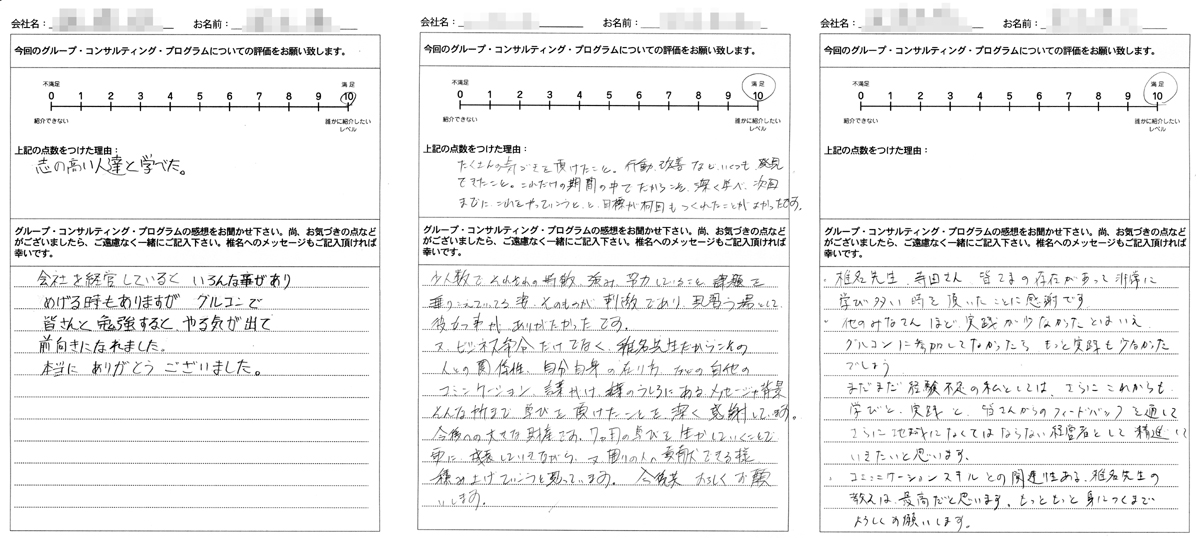 会社名：
お名前：
今回のグループ・コンサルティング・プログラムについての評価をお願い致します。
不満足
満足
0 1 2 3 4 5 6 7 8 9 10
紹介できない
誰かに紹介したい
レベル
上記の点数をつけた理由：
志の高い人達と学べた。
グループ・コンサルティング・プログラムの感想をお聞かせ下さい。尚、お気づきの点など
がございましたら、ご遠慮なく一緒にご記入下さい。椎名へのメッセージもご記入頂ければ
幸いです。
会社を経営していると いろんな事があり
めげる時もありますが グルコンで
皆さんと勉強すると、やる気が出て
前向きになれました。
本当に ありがとう ございました。
会社名：
お名前：
今回のグループ・コンサルティング・プログラムについての評価をお願い致します。
不満足
満足
0 1 2 3 4 5 6 7 8 9 10
紹介できない
誰かに紹介したい
レベル
上記の点数をつけた理由：
たくさんの気づきを頂けたこと。行動、改善など、いくつも発見
できたこと。これだけの期間の中でだからこそ、深く学べ、次回
までに、これをやっていこうと、と、目標が何回もつくれたことがよかったです。
グループ・コンサルティング・プログラムの感想をお聞かせ下さい。尚、お気づきの点など
がございましたら、ご遠慮なく一緒にご記入下さい。椎名へのメッセージもご記入頂ければ
幸いです。
少人数で それぞれの 強み、努力していること、課題を
乗りこえていてる 姿、そのものが 刺激であり、見習う場として
役立つ事が ありがたかったです。
又、ビジネス だけでなく、椎名先生だからこその
人との関係性、自分自身の在り方、などの
コミニケーション、 うしろにある、メッセージや背景
そんな所まで、学びを頂けたことを深く感謝しています。
今後への大きな財産です。7ヶ月の学びを生かしていくことで
更に、成長していきながら、又、周りの人へ貢献できる様
積み上げていこうと思っています。 今後共 よろしくお願
いします。
会社名：
お名前：
今回のグループ・コンサルティング・プログラムについての評価をお願い致します。
不満足
満足
0 1 2 3 4 5 6 7 8 9 10
紹介できない
誰かに紹介したい
レベル
上記の点数をつけた理由：
グループ・コンサルティング・プログラムの感想をお聞かせ下さい。尚、お気づきの点など
がございましたら、ご遠慮なく一緒にご記入下さい。椎名へのメッセージもご記入頂ければ
幸いです。
・椎名先生、寺田さん 皆さまの存在があって 非常に
学び多い 時を頂いたことに感謝です
・他のみなさんほど、実践が少なかったとはいえ、
グルコンに参加してなかったら もっと実践も少なかった
でしょう
まだまだ 経験不足の私としては、さらに これからも
学びと、実践と、皆さんからのフィードバックを通して
さらに 地域になくてはならない経営者として 精進して
いきたいと思います。
・コミニニケーションスキル との関連性ある、椎名先生の
教えは、最高だと思います。もっともっと 身につくまで
よろしくお願いします。